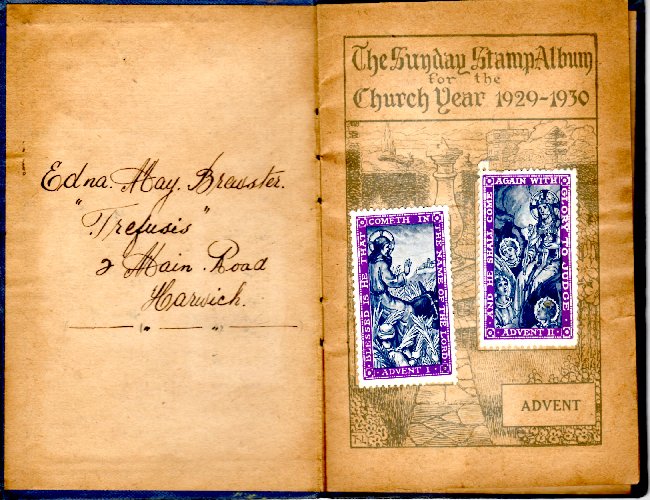 Edna. May. Brewster.
"Trefusis"
2 Main Road
Harwich.
The Sunday Stamp Album
for the
Church Year 1929-1930
BLESSED IS HE THAT COMETH IN THE NAME OF THE LORD
ADVENT I
AND HE SHALL COME AGAIN WITH GLORY TO JUDGE
ADVENT II
ADVENT